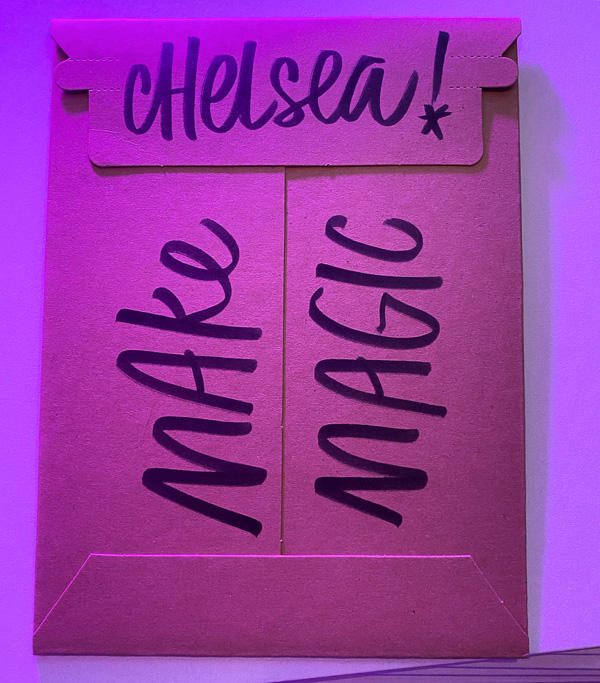 cHelsea!
MAke
MAGIC